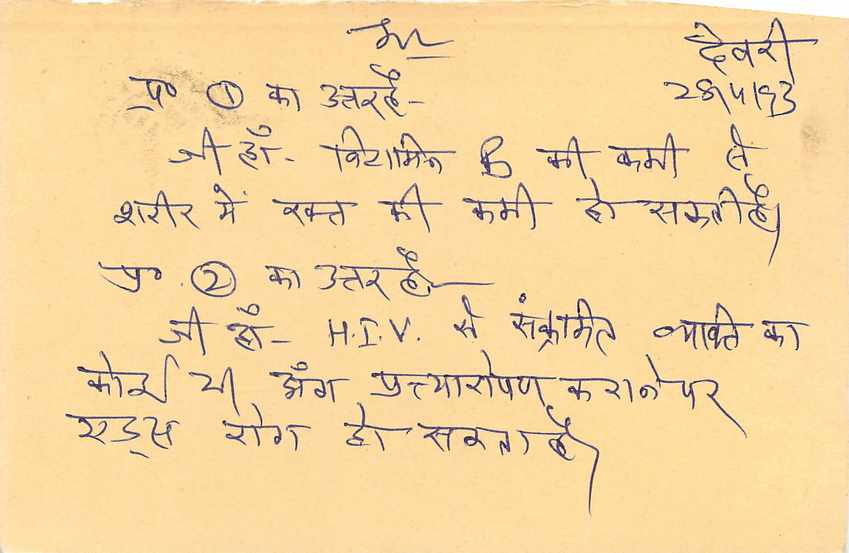 देवरी
28/4/93
प्र० ① का उत्तर है-
जी हाँ- विटामिन B की कमी से
शरीर में रक्त की कमी हो सकती है।
प्र० ② का उत्तर है-
जी हाँ- H.I.V. से संक्रामित व्यक्ति का
कोई भी अंग प्रत्यारोपण कराने पर
एड्स रोग हो सकता है।